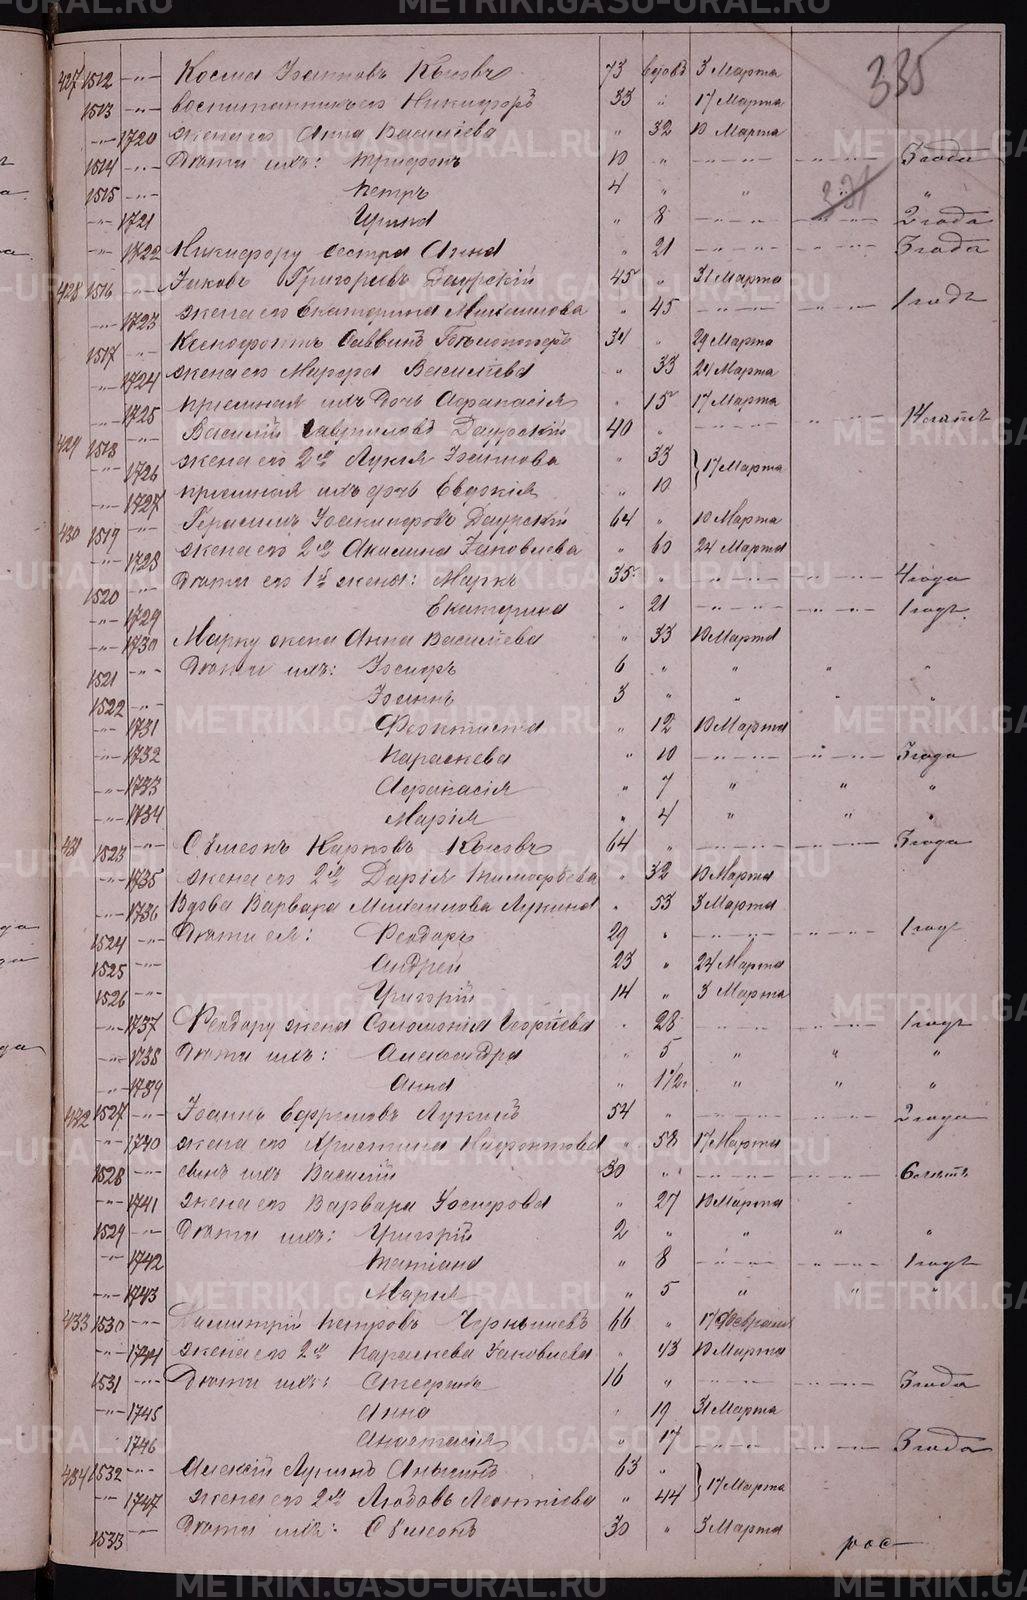 335
331
427 1512 –"– Косма Іоанновъ Кыковъ 73 вдовъ 3 Марта
1513 –"– воспитанникъ его Никифоръ 33 " 17 Марта
–"– 1720 жена его Анна Васильева " 32 10 Марта
1514 –"– Дѣти ихъ: Трифонъ 10 " –"–"– –"–"– 3 года
1515 –"– Петръ 4 " " " "
–"– 1721 Ирина " 8 –"–"– –"–"– 2 года
–"– 1722 Никифору сестра Анна " 21 –"–"– –"–"– 3 года
428 1516 –"– Іаковъ Григорьевъ Даурскій 45 " 31 Марта
–"– 1723 жена его Екатерина Михаилова " 45 –"–"– –"–"– 1 годъ
1517 –"– Ксенофонтъ Саввинъ 34 " 29 Марта
–"– 1724 жена его Марфа Васильева " 33 24 Марта
–"– 1725 пріемная ихъ дочь Афанасія " 15 17 Марта
429 1518 –"– Василій Гавриловъ Даурскій 40 " –"–"– –"–"– 14 лѣтъ
–"– 1726 жена его 2ая Лукія Іоаннова " 33 } 17 Марта
–"– 1727 пріемная ихъ дочь Евдокія " 10
430 1519 –"– Герасимъ Іоанникіровъ Даурскій 64 " 10 Марта
–"– 1728 жена его 2ая Акилина Іаковлева " 60 24 Марта
1520 –"– Дѣти его 1й жены: Маркъ 35 " –"–"– –"–"– 4 года
–"– 1729 Екатерина " 21 –"–"– –"–"– 1 годъ
–"– 1730 Марку жена Анна Васильева " 33 10 Марта
1521 –"– Дѣти ихъ: Іосифъ 6 " " "
1522 –"– Іоаннъ 3 " " "
–"– 1731 Феоктиста " 12 10 Марта
–"– 1732 Параскева " 10 –"–"– –"– 3 года
–"– 1733 Афанасія " 7 " " "
–"– 1734 Марія " 4 " " "
431 1523 –"– Сѵмеонъ Карповъ Кыковъ 64 " –"–"– –"–"– 3 года
–"– 1735 жена его 2ая Дарія Тимофѣева " 32 10 Марта
–"– 1736 Вдова Варвара Михаилова Лукина " 53 3 Марта
1524 –"– Дѣти ея: Феодоръ 29 " –"–"– –"–"– 1 годъ
1525 –"– Андрей 23 " 24 Марта
1526 –"– Григорій 14 " 3 Марта
–"– 1737 Феодору жена Соломонія Георгіева " 28 –"–"– –"–"– 1 годъ
–"– 1738 Дѣти ихъ: Александра " 5 " " "
–"– 1739 Анна " 1½ " " "
432 1527 –"– Іоаннъ Ефремовъ Лукинъ 54 " –"–"– –"–"– 2 года
–"– 1740 жена его Христина Ксенофонтова " 58 17 Марта
1528 –"– сынъ ихъ Василій 30 " –"–"– –"–"– 6 лѣтъ
–"– 1741 жена его Варвара Іосифова " 27 10 Марта
1529 –"– Дѣти ихъ: Григорій 2 " " " "
–"– 1742 Татіана " 8 –"–"– –"–"– 1 годъ
–"– 1743 Марія " 5 " " "
433 1530 –"– Димитрій Петровъ Чернышевъ 66 " 17 Февраля
–"– 1744 жена его 2ая Параскева Іаковлева " 43 10 Марта
1531 –"– Дѣти ихъ: Стефанъ 16 " –"–"– –"–"– 3 года
–"– 1745 Анна " 19 31 Марта
–"– 1746 Анастасія " 17 –"–"– –"–"– 3 года
434 1532 –"– Алексій 63 " } 17 Марта
–"– 1747 жена его 2ая Любовь Леонтіева " 44
1533 Дѣти ихъ: Сѵмеонъ 30 " 3 Марта
рос
METRIKI.GASO-URAL.RU